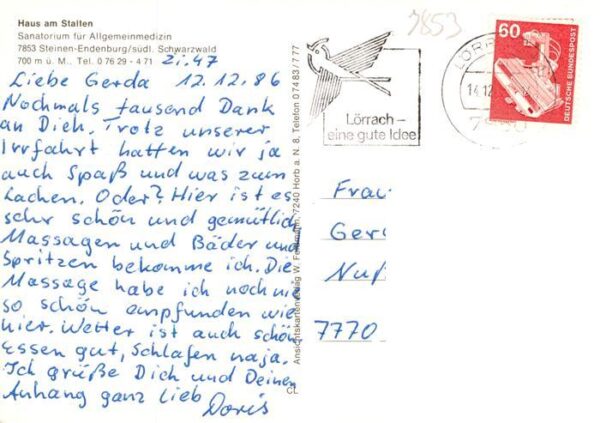 Haus am Stalten
Sanatorium für Allgemeinmedizin
7853 Steinen-Endenburg/südl. Schwarzwald
700 m ü. M., Tel. 0 76 29 - 4 71
Zi. 47
Liebe Gerda 12.12.86
Nochmals tausend Dank
an Dich. Trotz unserer
Irrfahrt hatten wir ja
auch Spaß und was zum
Lachen. Oder? Hier ist es
sehr schön und gemütlich
Massagen und Bäder und
Spritzen bekomme ich. Die
Massage habe ich noch nie
so schön empfunden wie
hier. Wetter ist auch schön
Essen gut, Schlafen naja.
Ich grüße Dich und Deinen
Anhang ganz lieb Doris
Ansichtskartenverlag W. 7240 Horb a. N. 8, Telefon 0 74 83 / 7 77
CL
7853
Lörrach –
eine gute Idee
LÖRR
14.12
60
DEUTSCHE BUNDESPOST
Frau
Ger
Nuß
7770